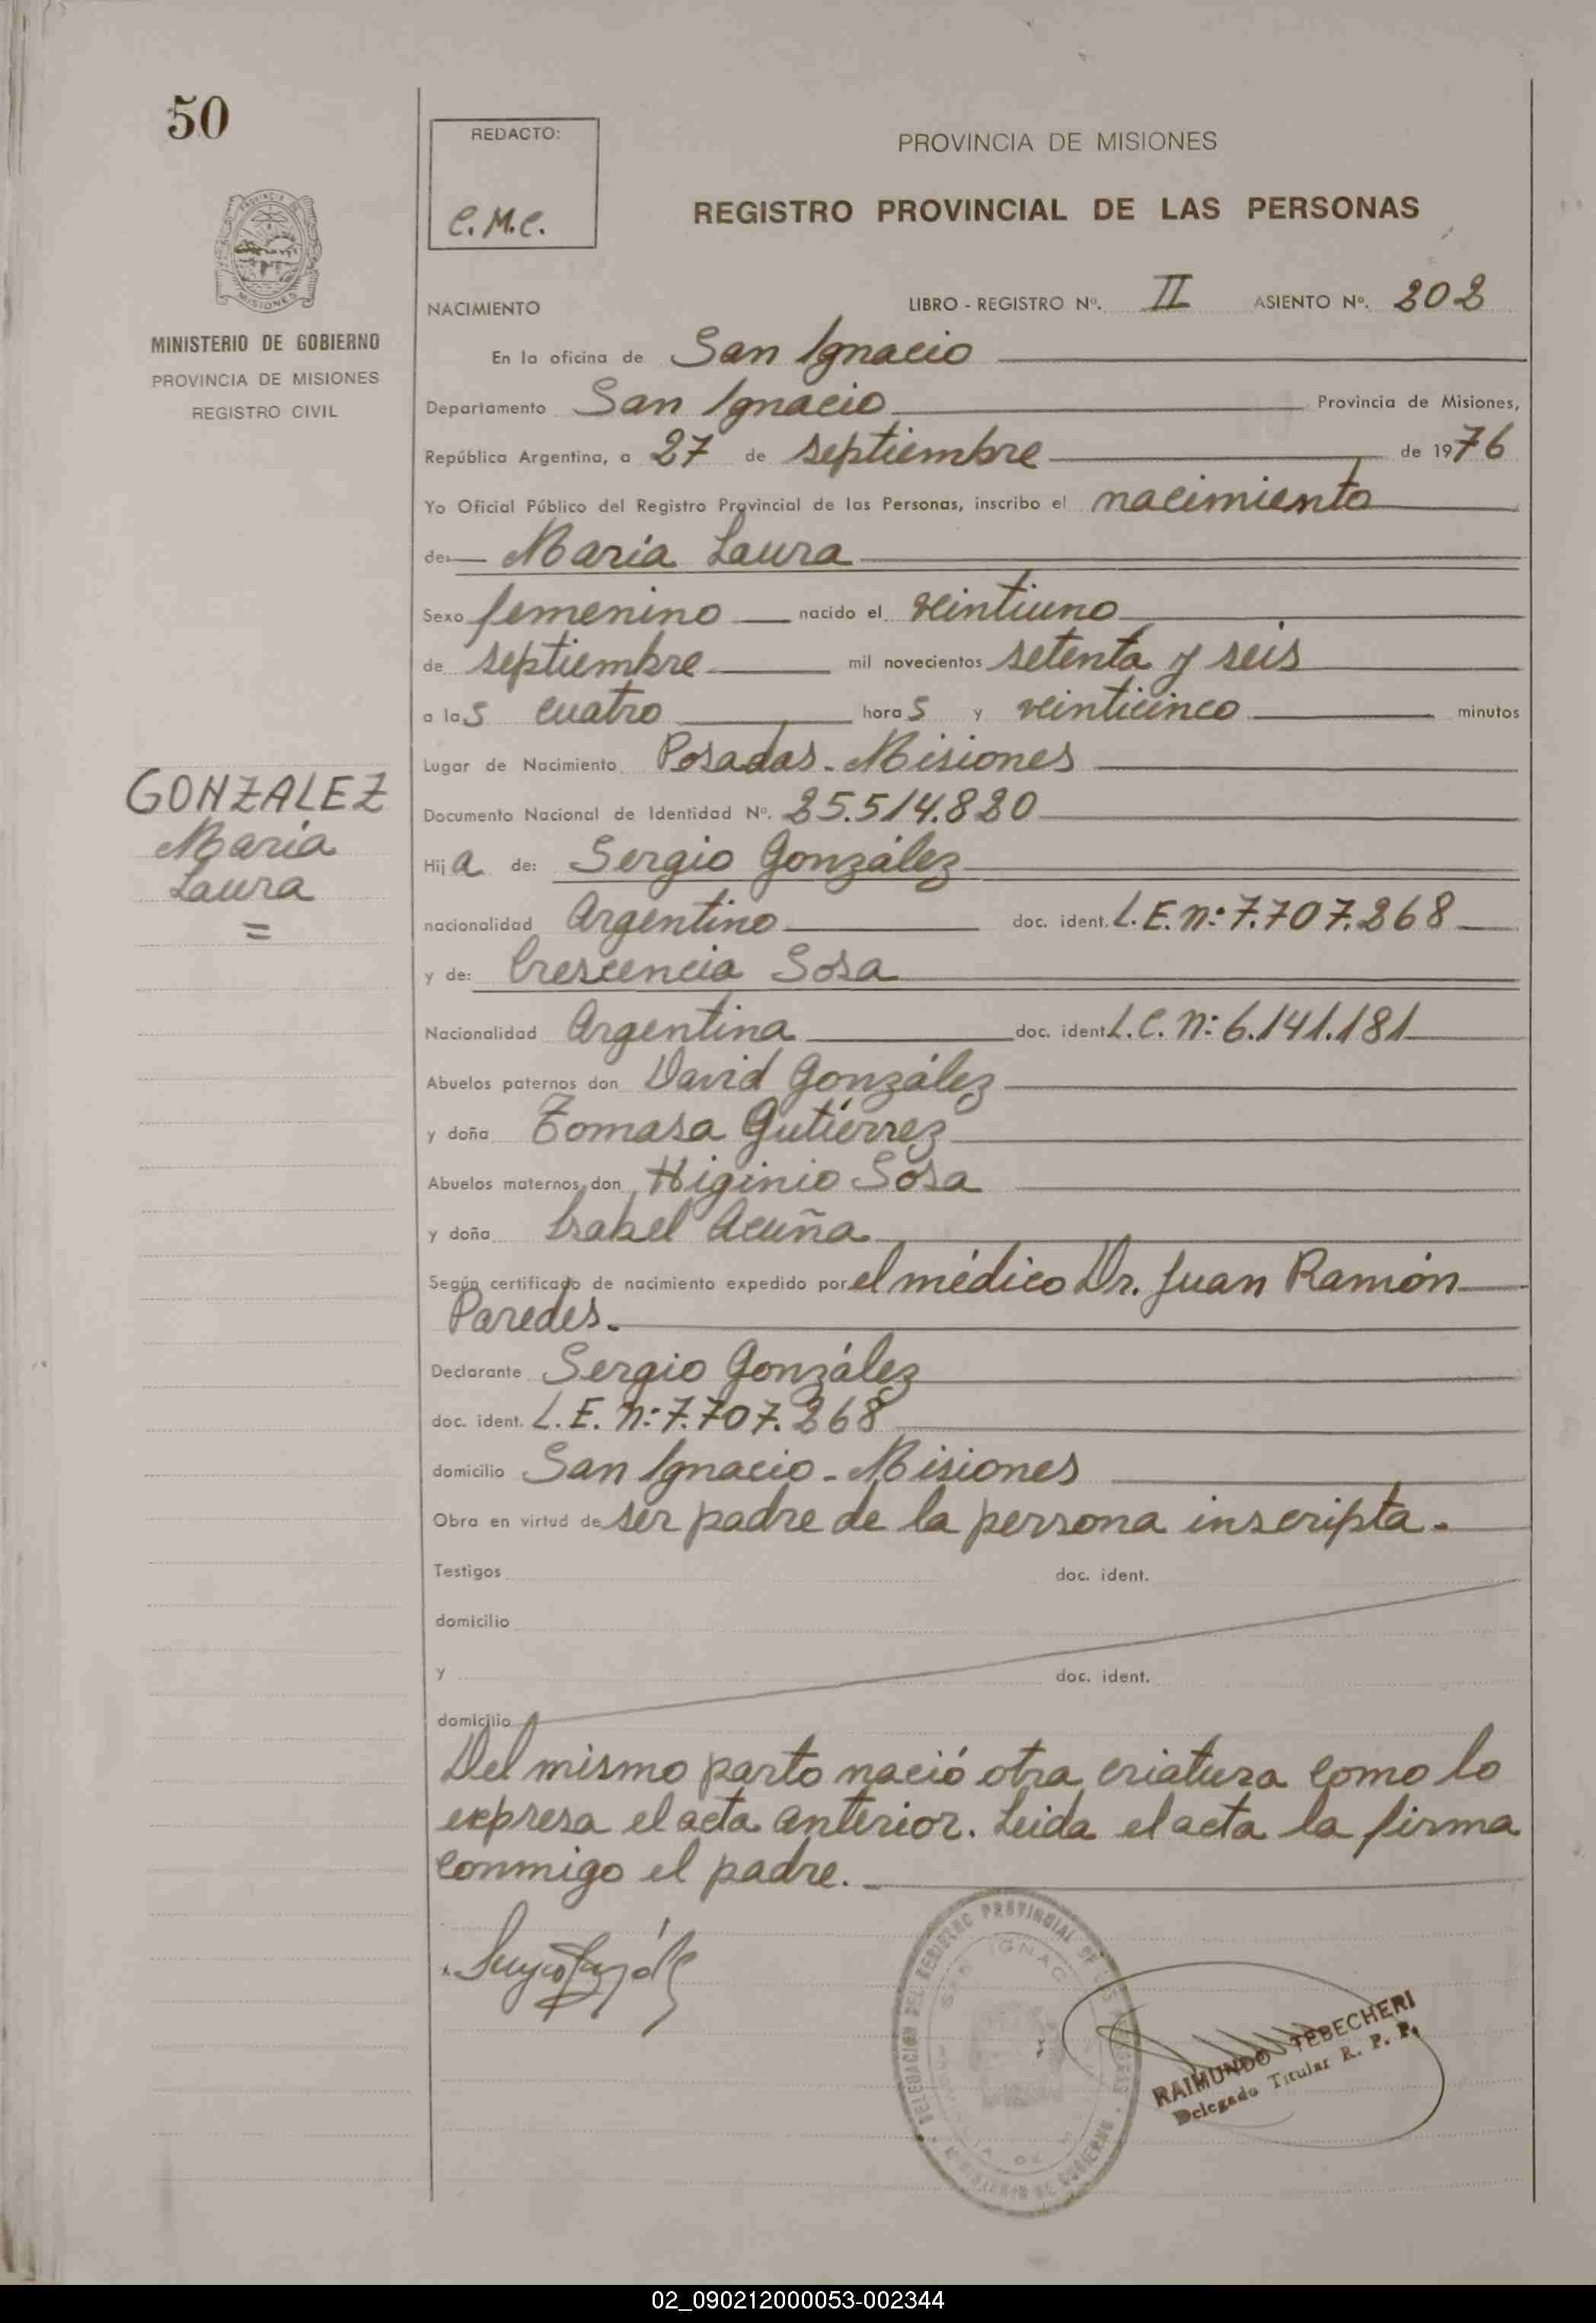 50
MINISTERIO DE GOBIERNO
PROVINCIA DE MISIONES
REGISTRO CIVIL
GONZALEZ
Maria
Laura
=
REDACTO:
C.M.C.
PROVINCIA DE MISIONES
REGISTRO PROVINCIAL DE LAS PERSONAS
NACIMIENTO LIBRO - REGISTRO Nº. II ASIENTO Nº. 202
En la oficina de San Ignacio
Departamento San Ignacio Provincia de Misiones,
República Argentina, a 27 de septiembre de 1976
Yo Oficial Público del Registro Provincial de las Personas, inscribo el nacimiento
de: María Laura
Sexo femenino nacido el veintiuno
de septiembre mil novecientos setenta y seis
a las cuatro horas y veinticinco minutos
Lugar de Nacimiento Posadas - Misiones
Documento Nacional de Identidad Nº. 25.514.820
Hija de: Sergio González
nacionalidad Argentino doc. ident. L.E. n: 7.707.268
y de: Crescencia Sosa
Nacionalidad Argentina doc. ident. L.C. n: 6.141.181
Abuelos paternos don David González
y doña Tomasa Gutiérrez
Abuelos maternos don Higinio Sosa
y doña Isabel Acuña
Según certificado de nacimiento expedido por el médico Dr. Juan Ramón
Paredes.
Declarante Sergio González
doc. ident. L.E. n: 7.707.268
domicilio San Ignacio - Misiones
Obra en virtud de ser padre de la persona inscripta.
Testigos doc. ident.
domicilio
y doc. ident.
domicilio
Del mismo parto nació otra criatura como lo
expresa el acta anterior. Leida el acta la firma
conmigo el padre.
DELEGACION DEL REGISTRO PROVINCIAL DE
MINISTERIO DE GOBIERNO
RAIMUNDO TEBECHERI
Delegado Titular R. P. P.
02_090212000053-002344